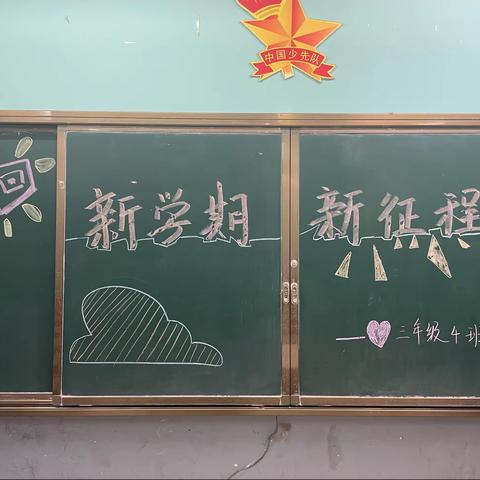 中国少先队
新学期 新征程
三年级4班